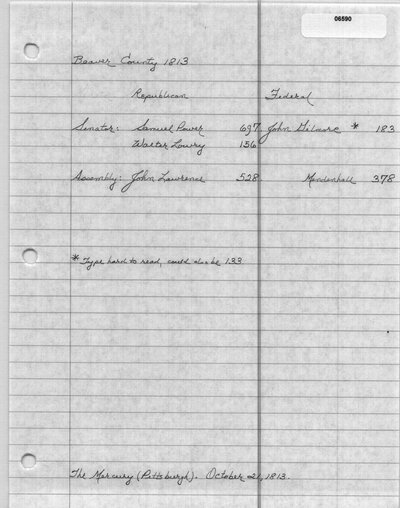 06590
Beaver County 1813
Republican Federal
Senator: Samuel Power 697 John Gilmore * 183
Walter Lowry 156
Assembly: John Lawrence 528 Mendenhall 378
* Type hard to read, could also be 133
The Mercury (Pittsburgh). October 21, 1813.